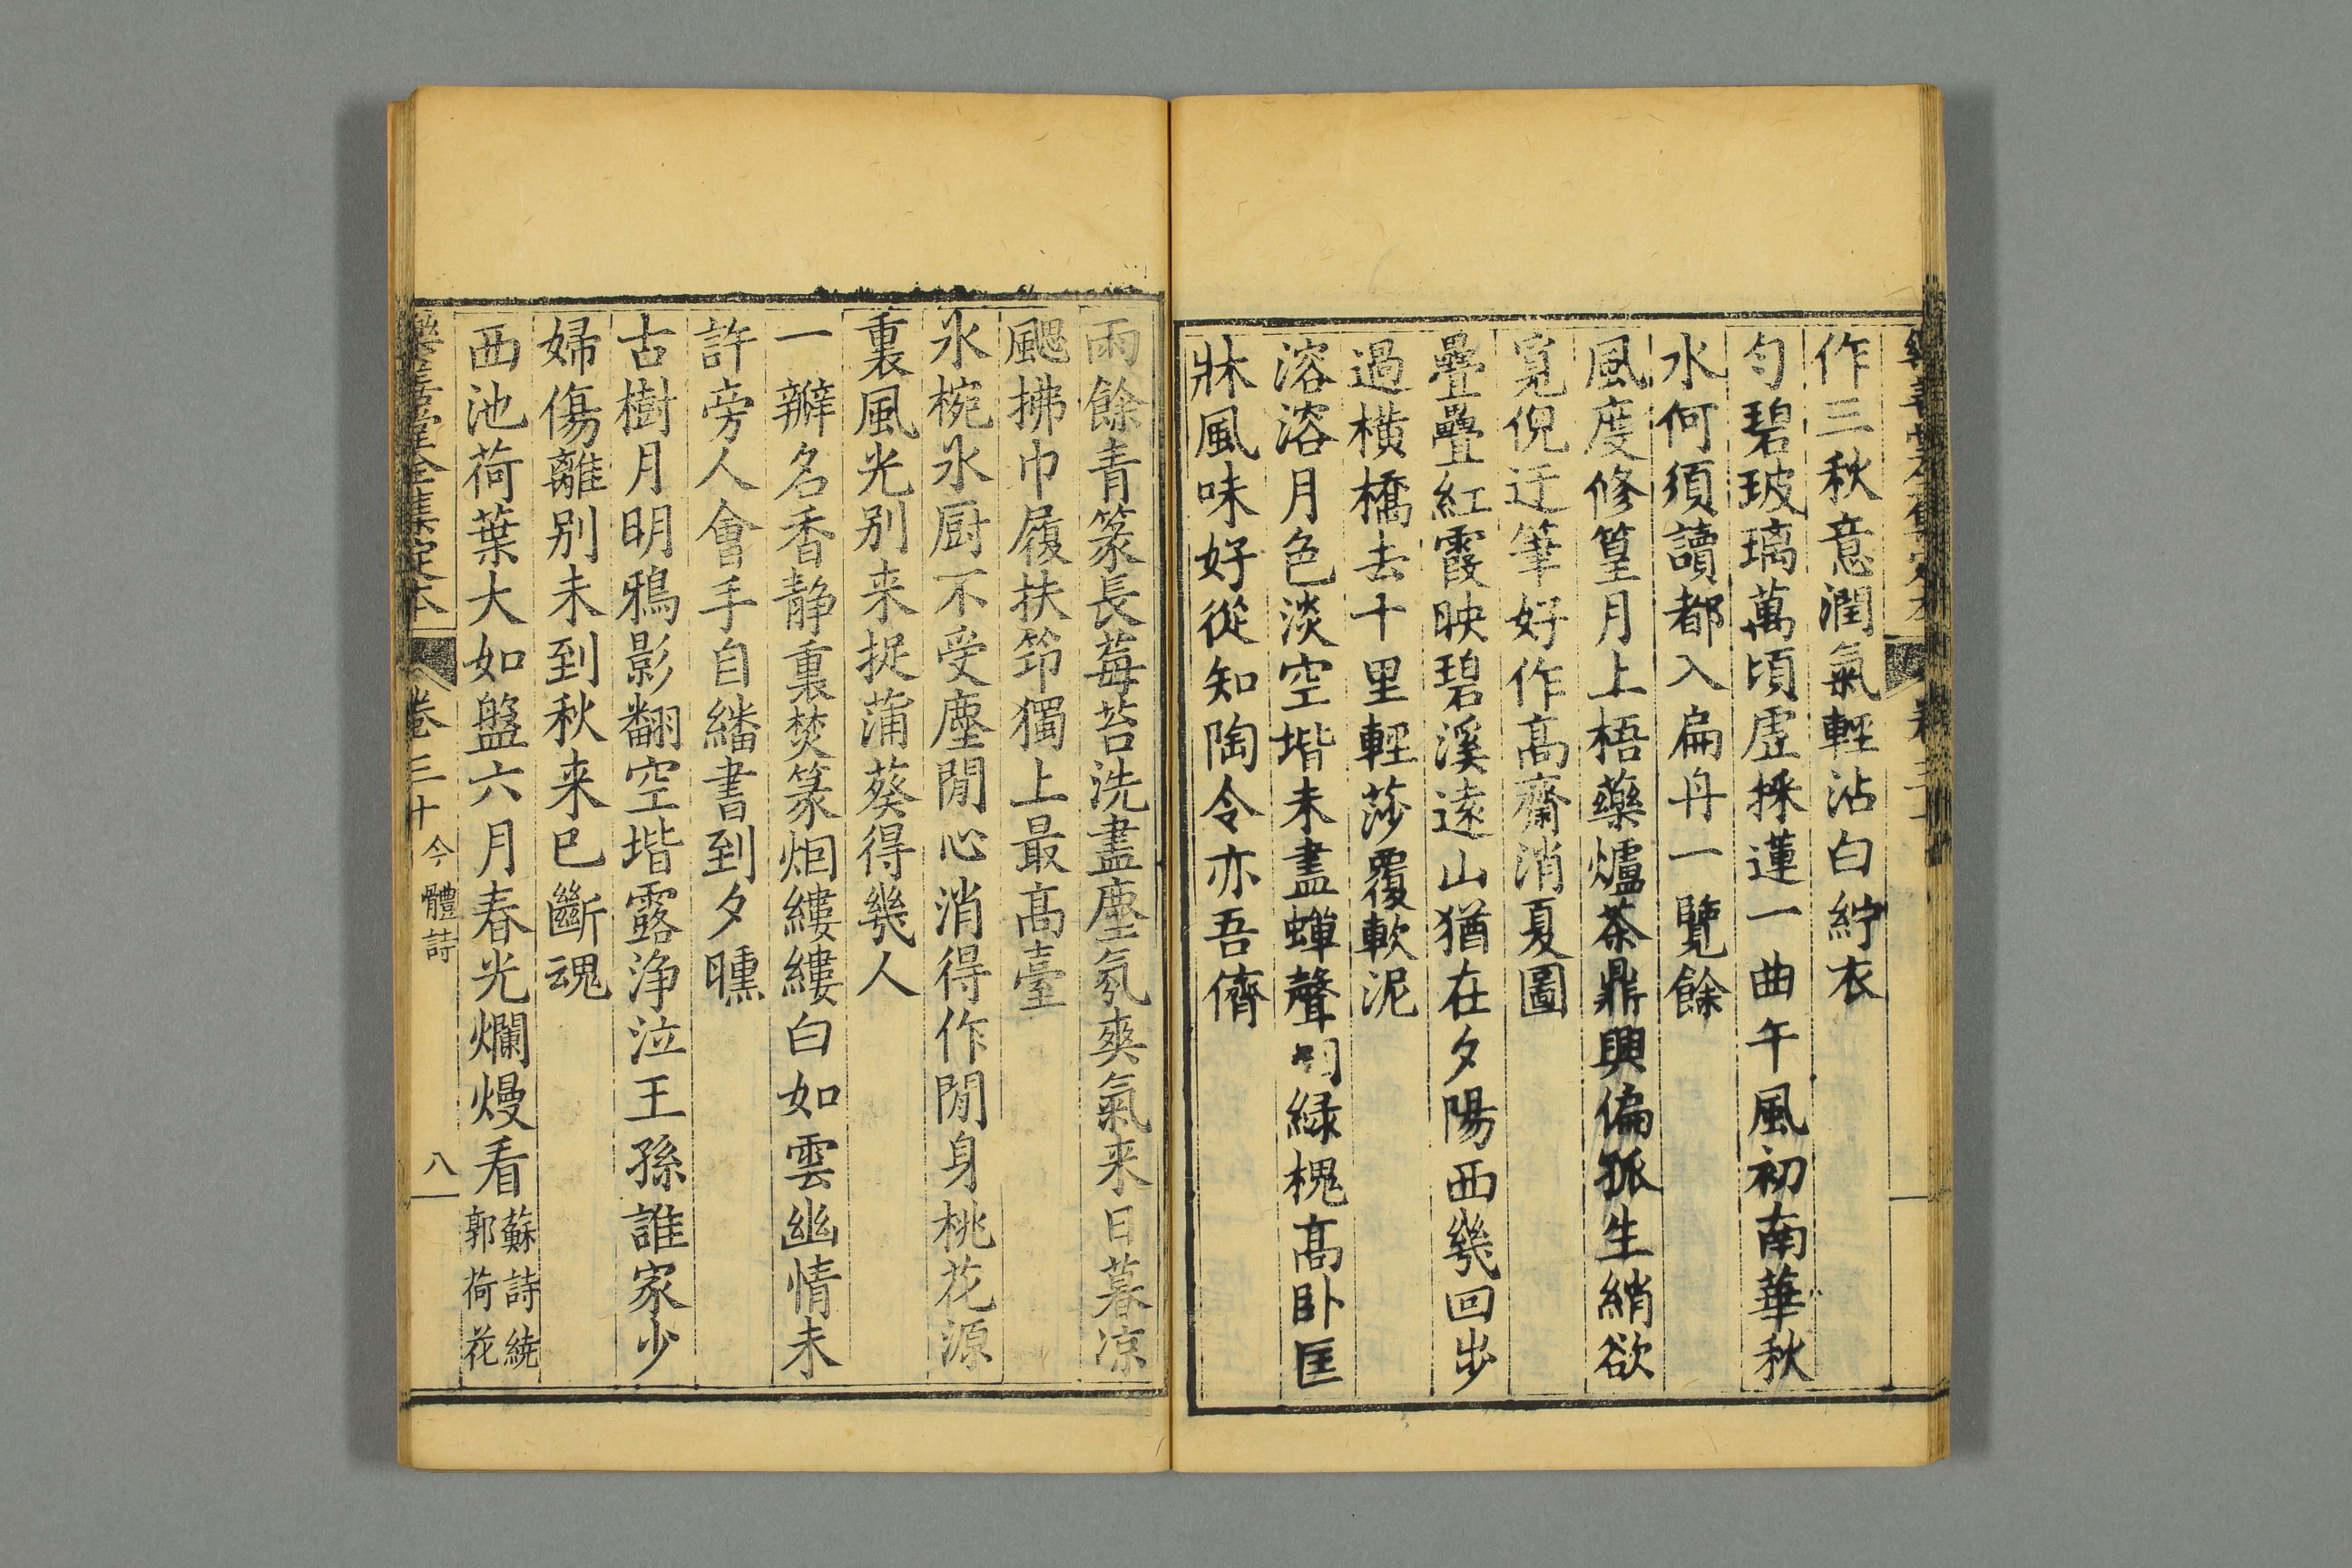 作三秋意潤氣輕沾白紵衣
勻碧玻璃萬頃虛採蓮一曲午風初南華秋
水何須讀都入扁舟一覽餘
風度修篁月上梧藥爐茶鼎興偏孤生綃欲
覔倪迂筆好作高齋消夏圖
疊疊紅霞映碧溪遠山猶在夕陽西幾回步
過橫橋去十里輕莎覆軟泥
溶溶月色淡空堦未盡蟬聲綠槐高卧匡
牀風味好從知陶令亦吾儕
雨餘青篆長莓苔洗盡塵氛爽氣来日暮凉
颸拂巾履扶笻獨上最高臺
氷椀氷廚不受塵閒心消得作閒身桃花源
裏風光别来捉蒲葵得幾人
一瓣名香静裏焚篆烟縷縷白如雲幽情未
許旁人會手自繙書到夕曛
古樹月明鴉影翻空堦露浄泣王孫誰家少
婦傷離别未到秋来已斷魂
西池荷葉大如盤六月春光爛熳看蘇詩繞郭荷花
樂善堂全集定本 卷三十 今體詩 八